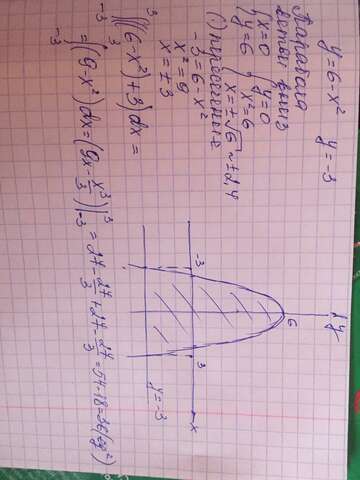 y=6-x² y=-3
Парабола
ветви вниз
{x=0 {y=0
{y=6 {x²=6
x=±√6≈±2,4
(·) пересечения:
-3=6-x²
x²=9
x=±3
∫₋₃³((6-x²)+3)dx=
=∫₋₃³(9-x²)dx=(9x-x³/3)|₋₃³=27-27/3+27-27/3=54-18=36(ед²)
y
6
-3
3
x
y=-3